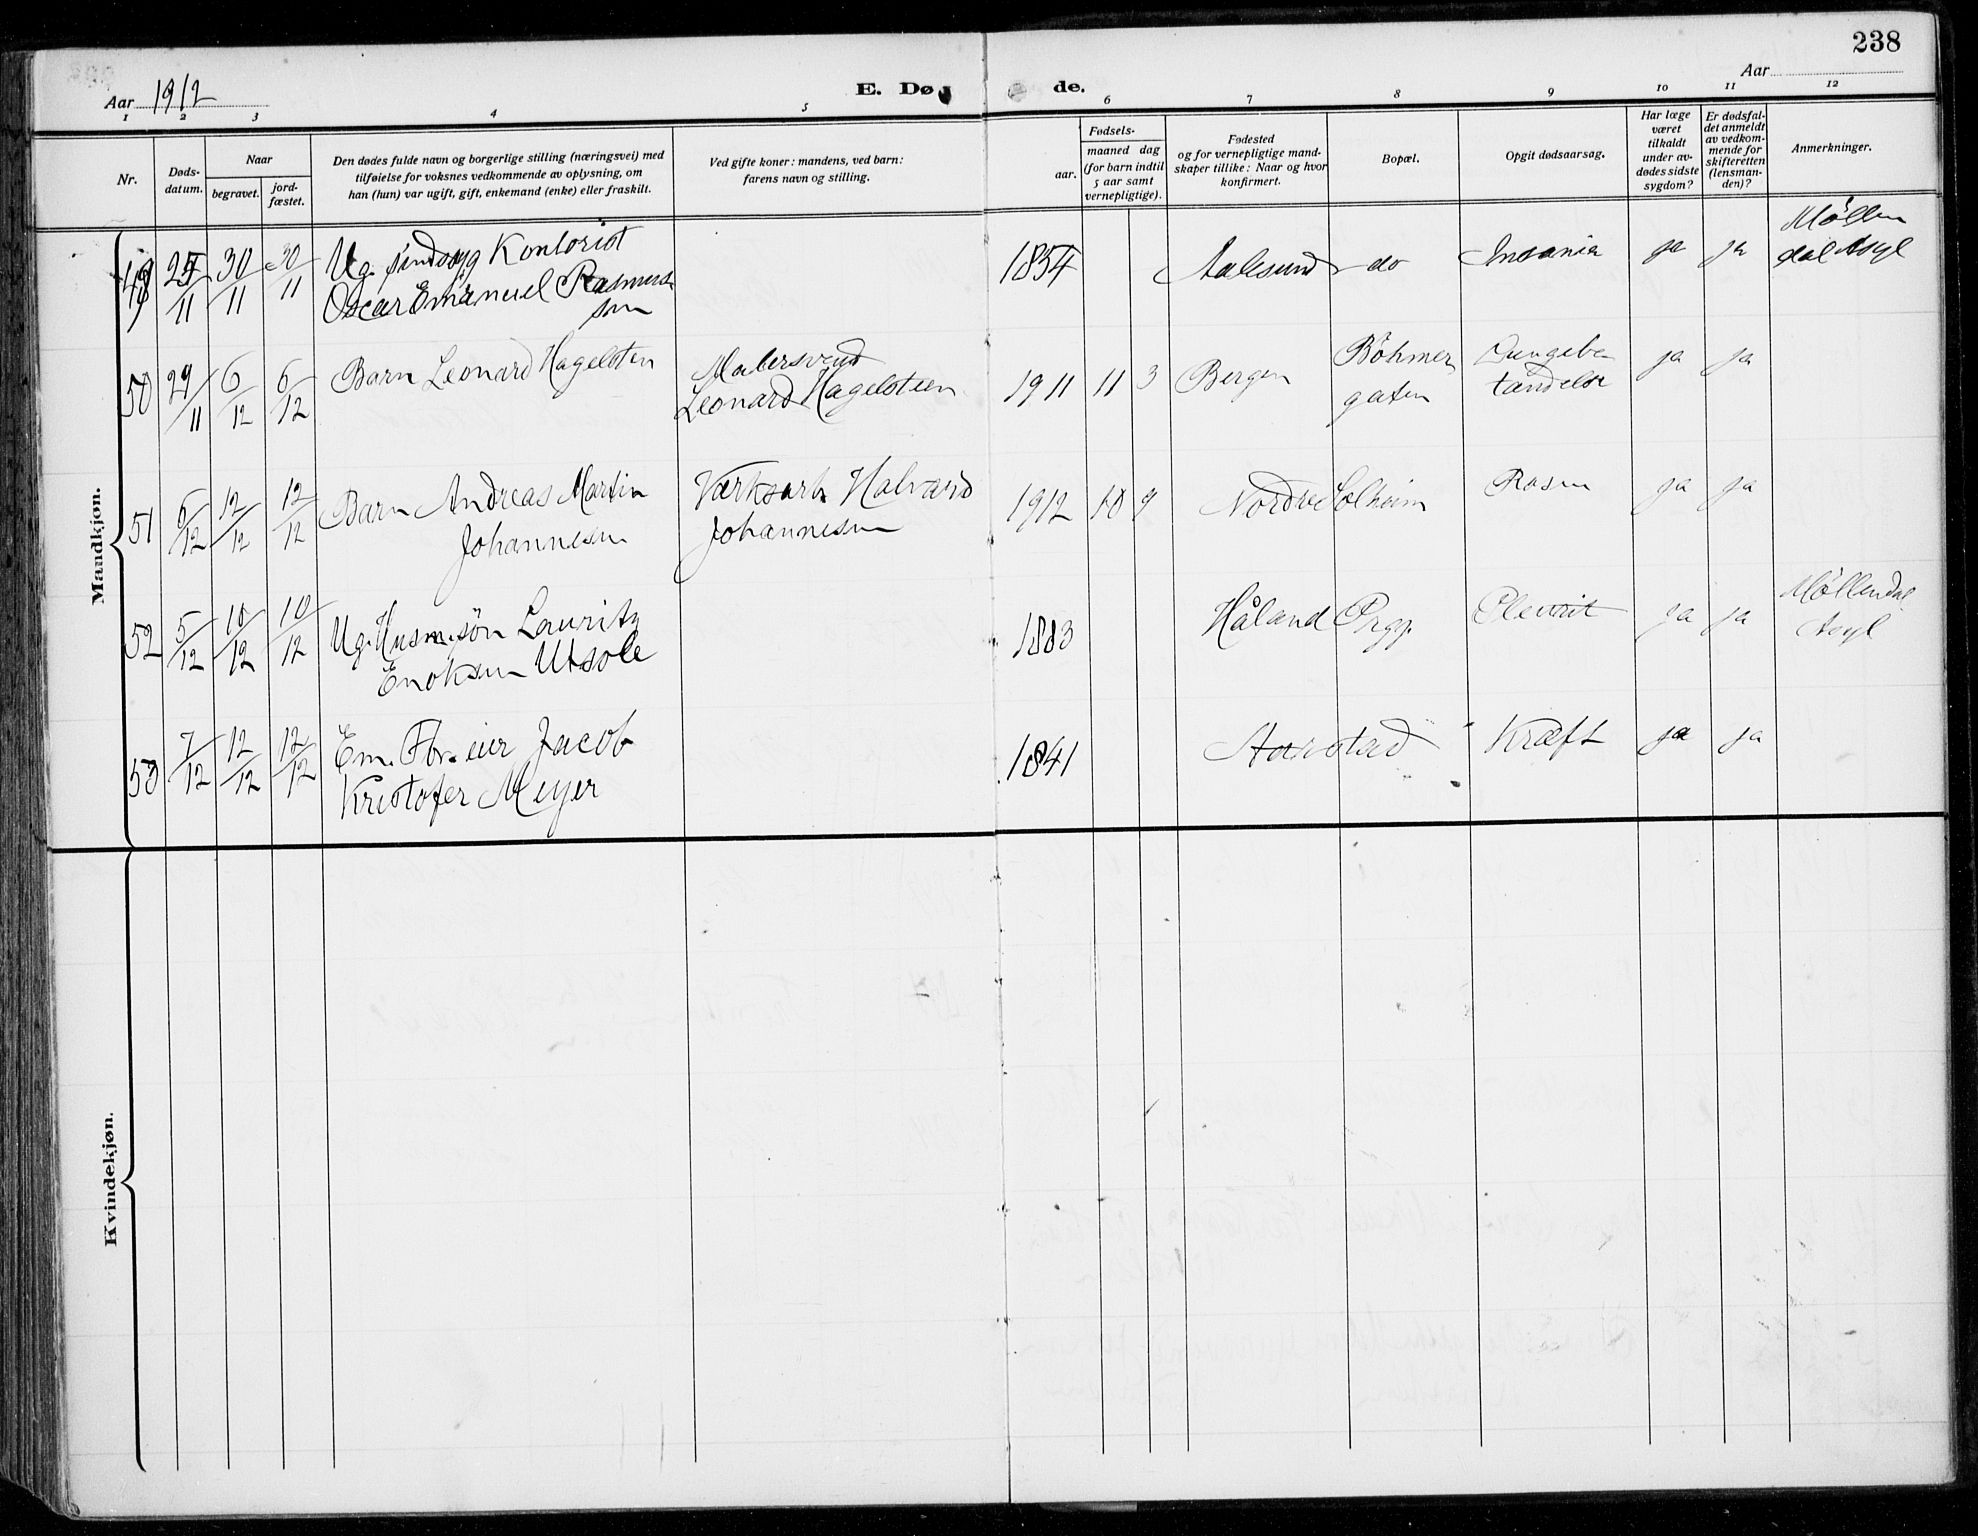 238
Aar 1912
E. Dø de.
Aar
1 2 3 4 5 6 7 8 9 10 11 12
Nr.
Døds-
datum.
Naar
begravet.
jord-
fæstet.
Den dødes fulde navn og borgerlige stilling (næringsvei) med
tilføielse for voksnes vedkommende av oplysning, om
han (hun) var ugift, gift, enkemand (enke) eller fraskilt.
Ved gifte koner: mandens, ved barn:
farens navn og stilling.
Fødsels-
aar.
maaned dag
(for barn indtil
5 aar samt
vernepligtige).
Fødested
og for vernepligtige mand-
skaper tillike: Naar og hvor
konfirmert.
Bopæl.
Opgit dødsaarsag.
Har læge
været
tilkaldt
under av-
dødes sidste
sygdom?
Er dødsfal-
det anmeldt
av vedkom-
mende for
skifteretten
(lensman-
den)?
Anmerkninger.
Mandkjøn.
49 25/11 30/11 30/11 Ug. sindssyg Kontorist 1854 Aalesund do Insania ja ja Møllen
Oscar Emanuel Rasmus dal Asyl
sen
50 29/11 6/12 6/12 Barn Leonard Hagelsten Malersvend 1911 11 3 Bergen Böhmer Lungebe ja ja
Leonard Hagelsteen gaten tændelse
51 6/12 12/12 12/12 Barn Andreas Martin Værksarb Halvard 1912 10 9 Nordre Solheim Rosen ja ja
Johannesen Johannesen
52 5/12 10/12 10/12 Ug. Husm.søn Lauritz 1883 Håland Prgj. Pleurit ja ja Møllendal
Enoksen Utsole Asyl
53 7/12 12/12 12/12 Em. Fbr.eier Jacob 1841 Aarstad Kræft ja ja
Kristofer Meyer
Kvindekjøn.